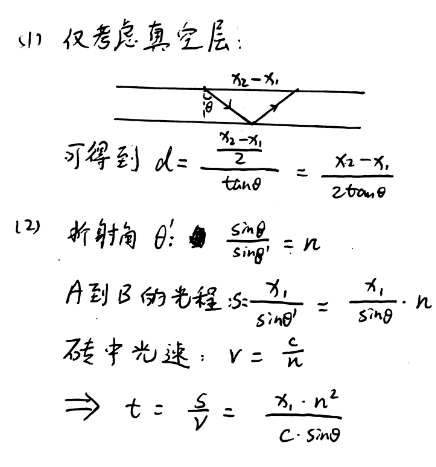 (1) 仅考虑真空层:
x₂-x₁
θ
可得到 d = \frac{\frac{x₂-x₁}{2}}{tanθ} = \frac{x₂-x₁}{2tanθ}
(2) 折射角 θ': \frac{sinθ}{sinθ'} = n
A到B的光程:S = \frac{x₁}{sinθ'} = \frac{x₁}{sinθ} · n
砖中光速: v = \frac{c}{n}
⇒ t = \frac{S}{v} = \frac{x₁·n²}{c·sinθ}